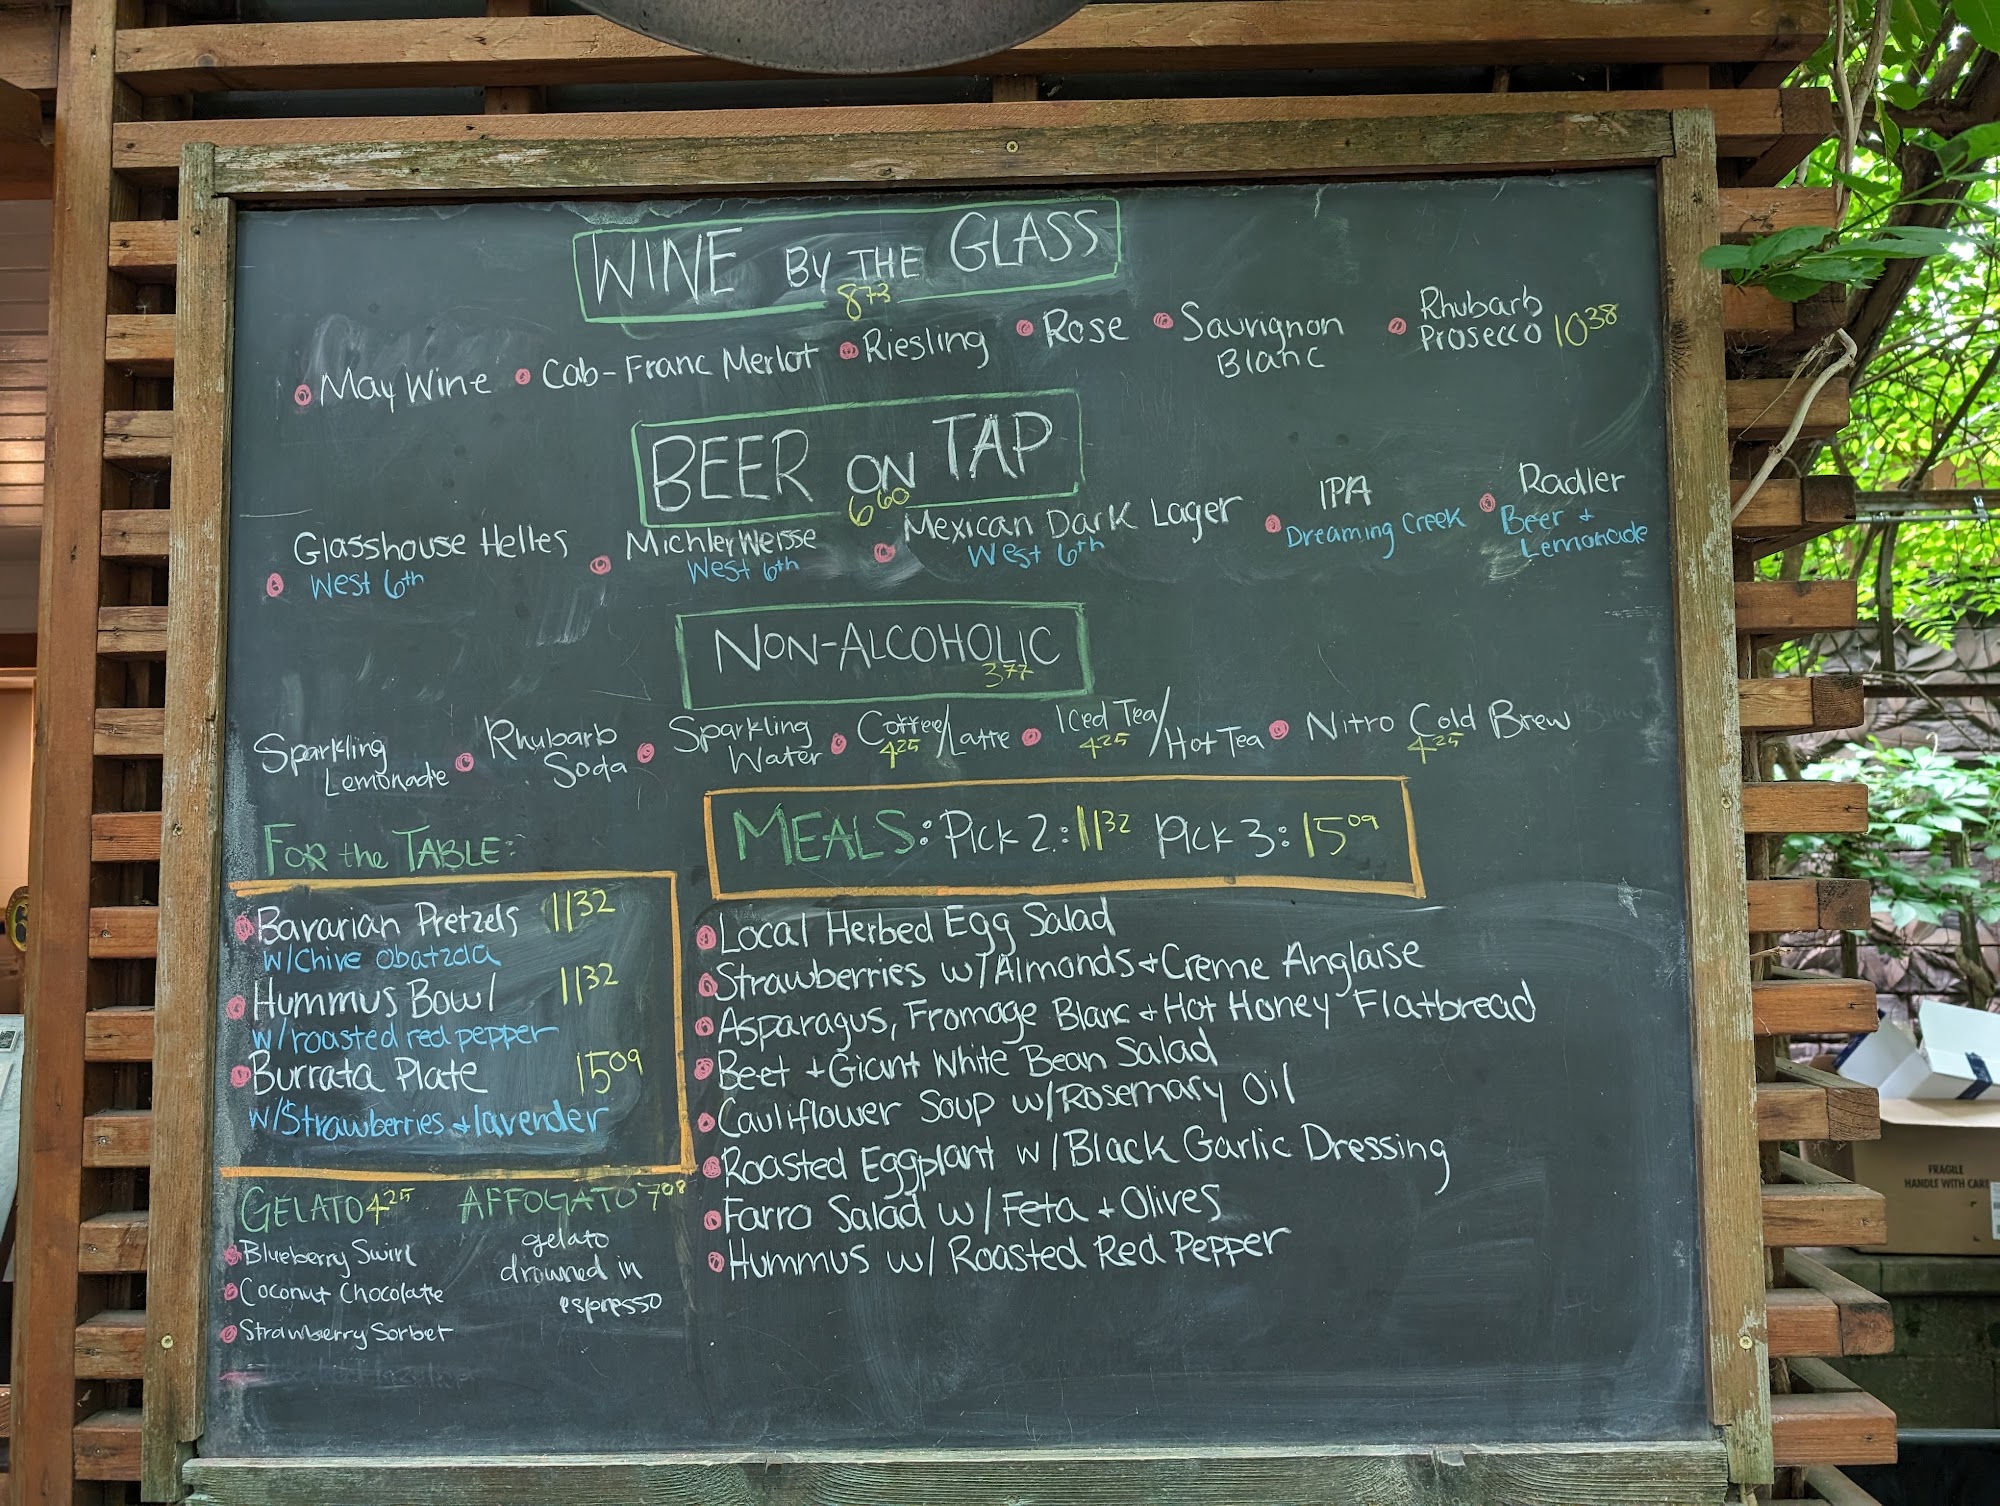 WINE BY THE GLASS
8 73
May Wine
Cab-Franc Merlot
Riesling
Rose
Sauvignon
Blanc
Rhubarb
Prosecco 10 38
BEER ON TAP
6 60
Glasshouse Helles
West 6th
Michler Weisse
West 6th
Mexican Dark Lager
West 6th
IPA
Dreaming Creek
Radler
Beer +
Lemonade
NON-ALCOHOLIC
3 77
Sparkling
Lemonade
Rhubarb
Soda
Sparkling
Water
Coffee/Latte
4 25
Iced Tea/Hot Tea
4 25
Nitro Cold Brew
4 25
FOR the TABLE:
Bavarian Pretzels 11 32
w/Chive Obatzda
Hummus Bowl 11 32
w/roasted red pepper
Burrata Plate 15 09
w/Strawberries + lavender
GELATO 4 25
Blueberry Swirl
Coconut Chocolate
Strawberry Sorbet
AFFOGATO 7 08
gelato
drowned in
espresso
MEALS: Pick 2: 11 32 Pick 3: 15 09
Local Herbed Egg Salad
Strawberries w/Almonds + Creme Anglaise
Asparagus, Fromage Blanc + Hot Honey Flatbread
Beet + Giant White Bean Salad
Cauliflower Soup w/Rosemary Oil
Roasted Eggplant w/Black Garlic Dressing
Farro Salad w/Feta + Olives
Hummus w/ Roasted Red Pepper
FRAGILE
HANDLE WITH CARE